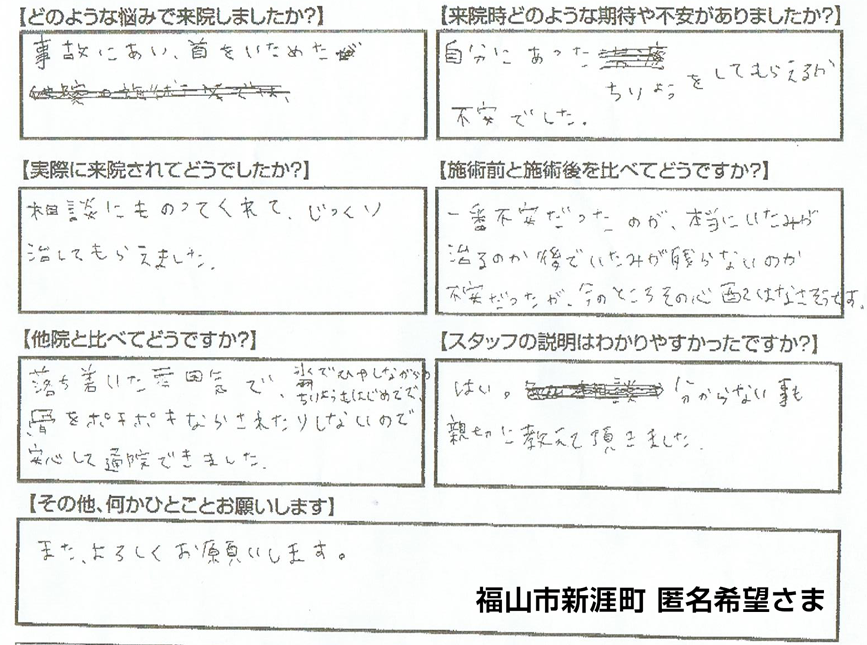 【どのような悩みで来院しましたか?】
事故にあい、首をいためた
【来院時どのような期待や不安がありましたか?】
自分にあった
ちりょうをしてもらえるか
不安でした。
【実際に来院されてどうでしたか?】
相談にものってくれて、じっくり
治してもらえました。
【施術前と施術後を比べてどうですか?】
一番不安だったのが、本当にいたみが
治るのか後でいたみが残らないのか
不安だったが、今のところその心配はなさそうです。
【他院と比べてどうですか?】
落ち着いた雰囲気で、氷でひやしながらの
ちりょうもはじめてで、
骨をポキポキならされたりしないので
安心して通院できました。
【スタッフの説明はわかりやすかったですか?】
はい。分からない事も
親切に教えて頂きました。
【その他、何かひとことお願いします】
また、よろしくお願いします。
福山市新涯町 匿名希望さま